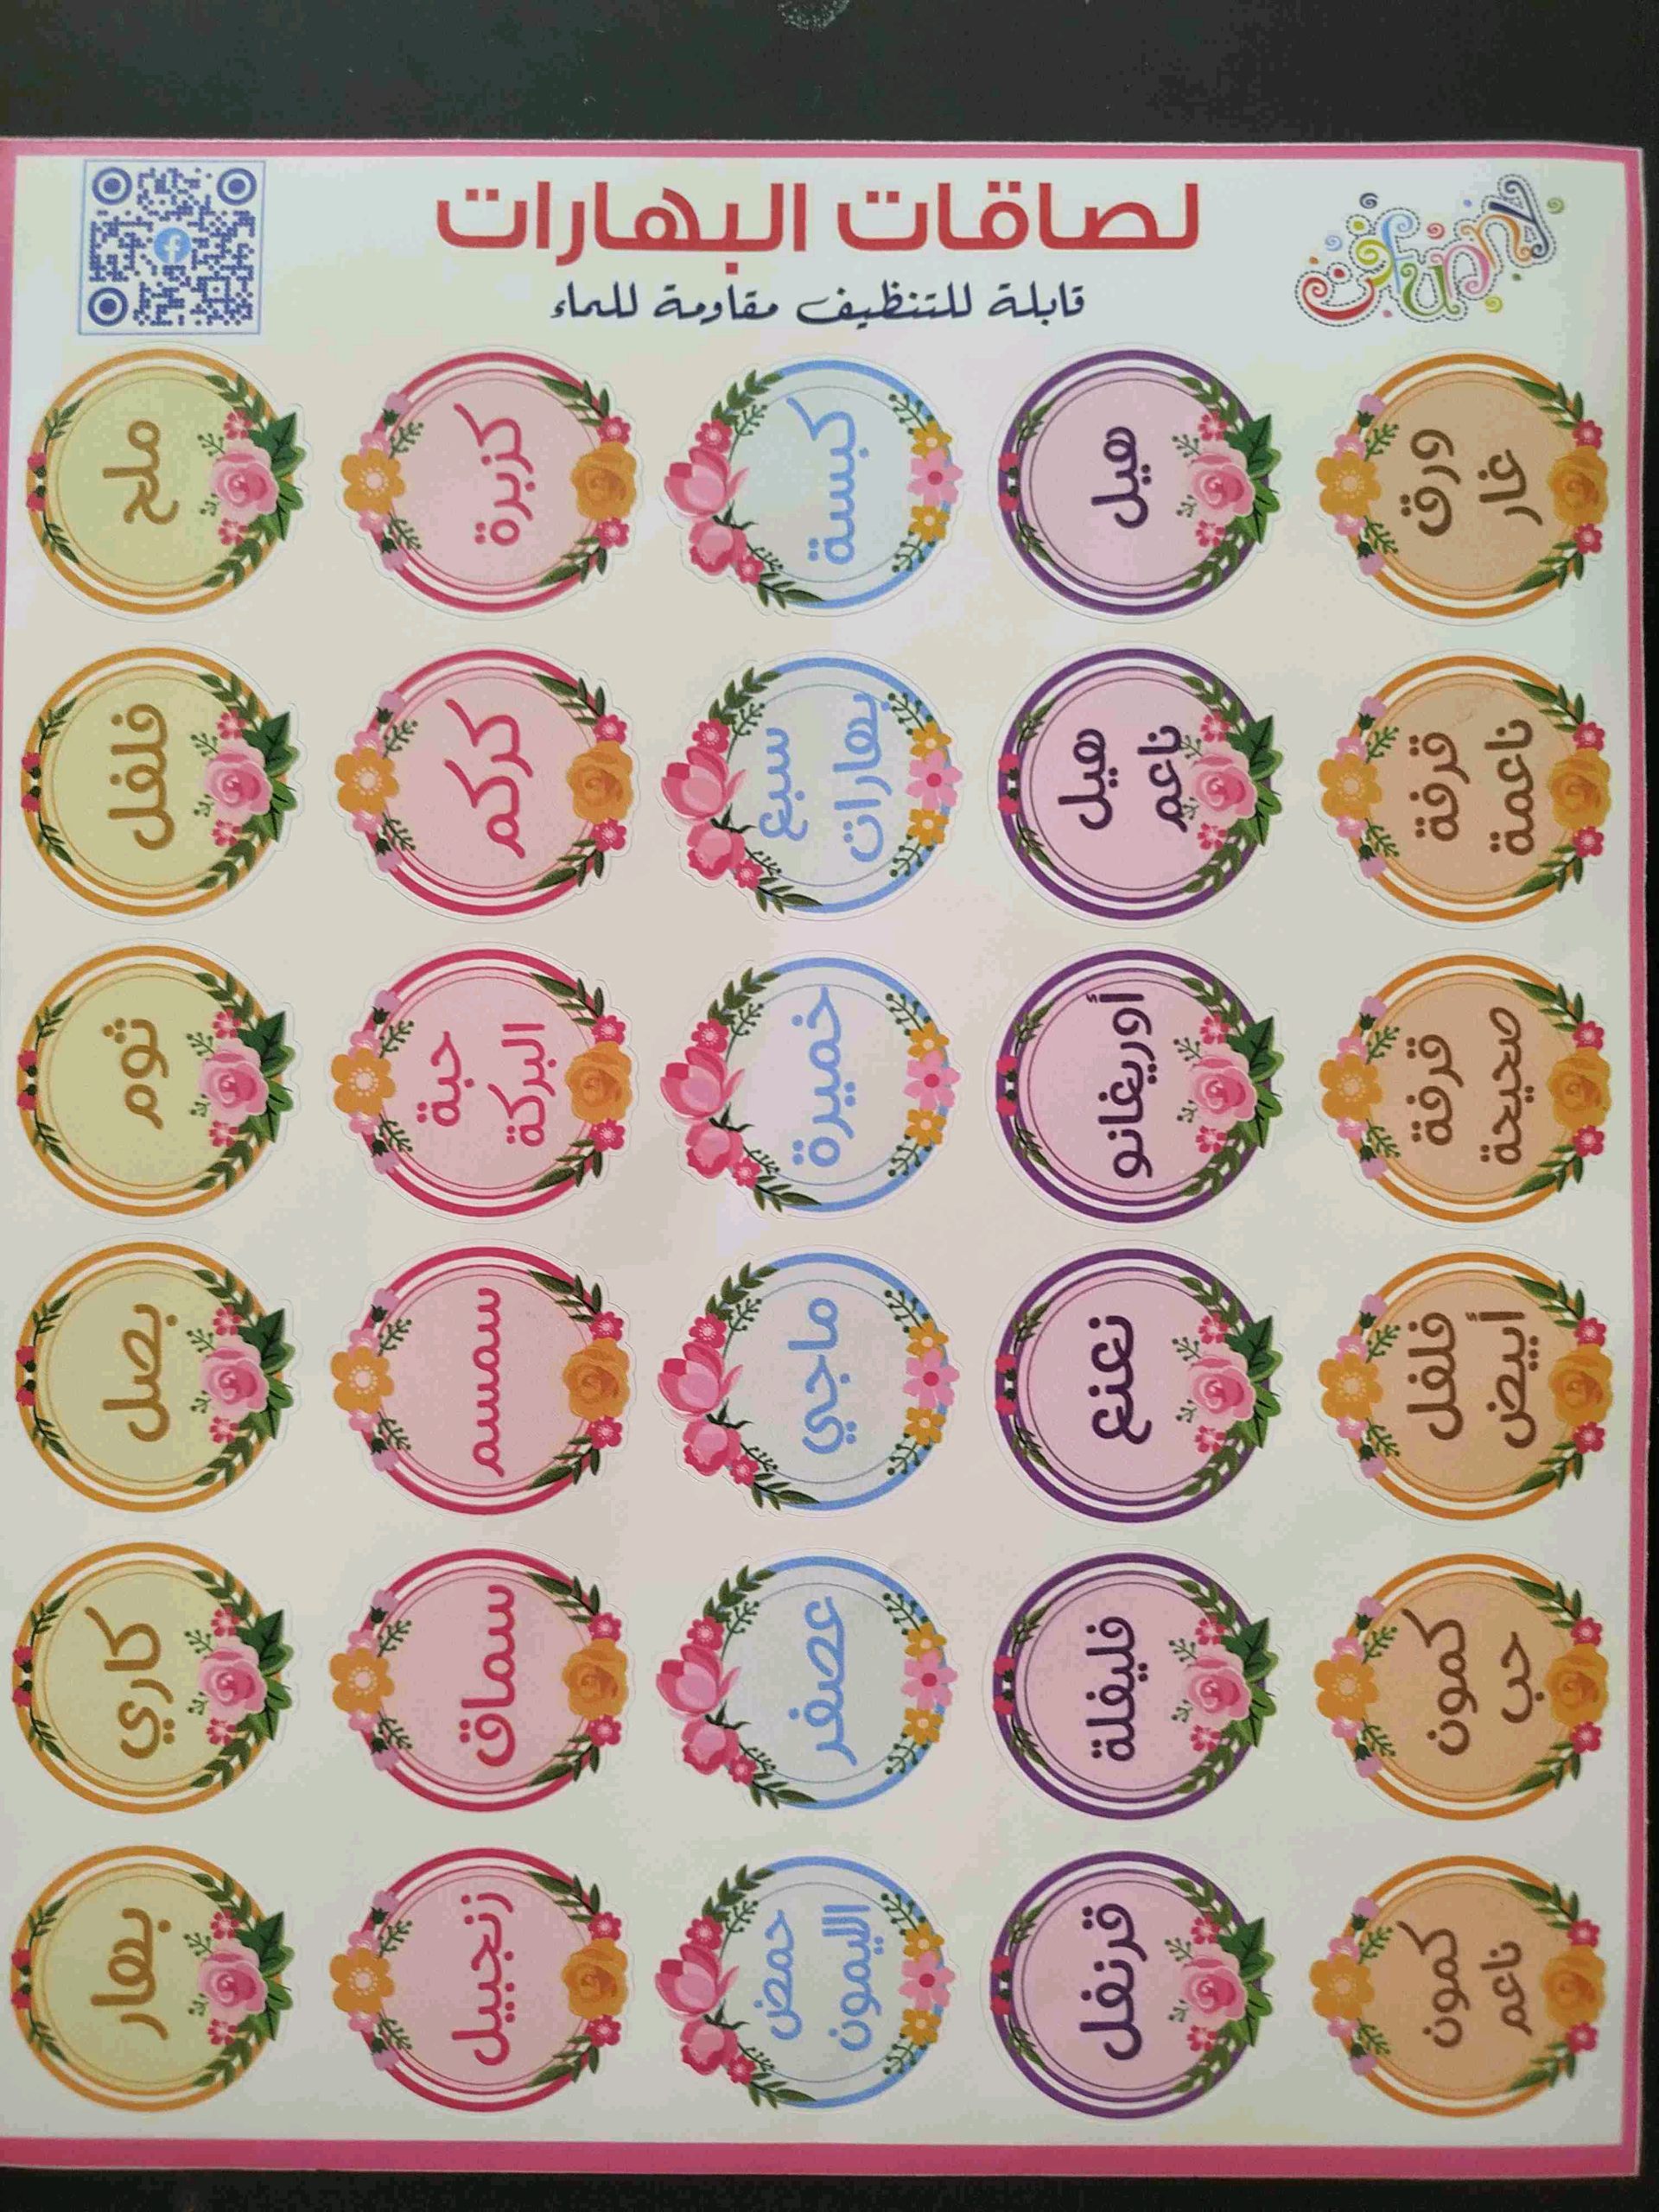 لصاقات البهارات
قابلة للتنظيف مقاومة للماء
funny
ملح
كزبرة
كبسة
هيل
ورق
غار
فلفل
كركم
سبع
بهارات
هيل
ناعم
قرفة
ناعمة
ثوم
حبة
البركة
خميرة
أوريغانو
قرفة
صحيحة
بصل
سمسم
ماجي
نعنع
فلفل
أبيض
كاري
سماق
عصفر
فليفلة
كمون
حب
بهار
زنجبيل
حمض
الليمون
قرنفل
كمون
ناعم